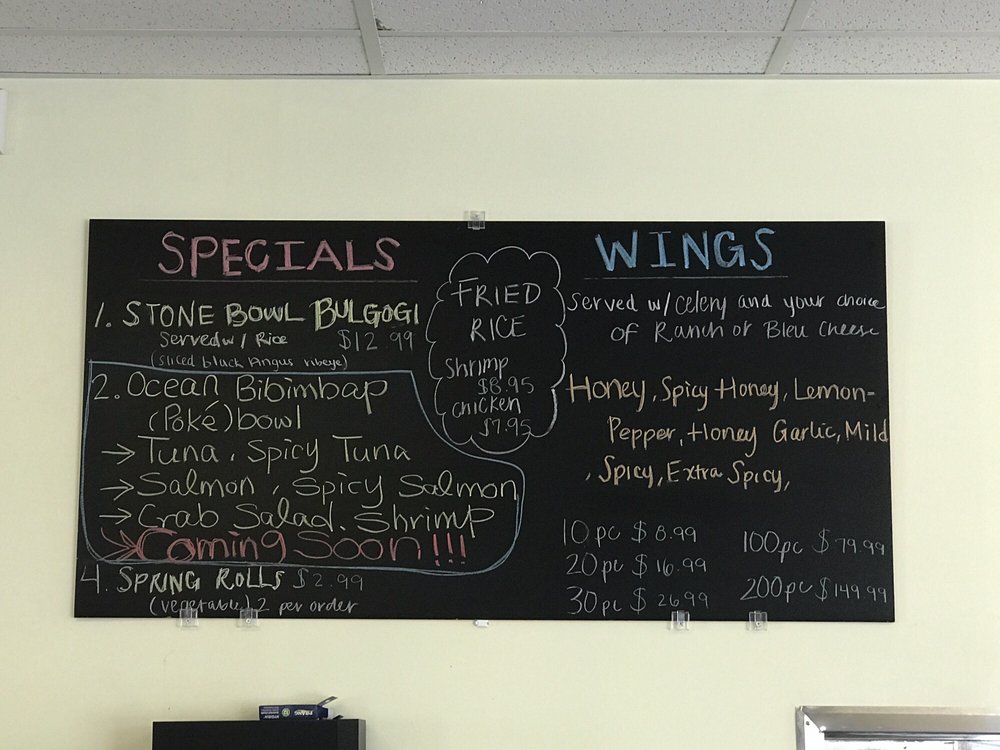 SPECIALS
1. STONE BOWL BULGOGI
Served w/ Rice $12.99
(sliced black Angus ribeye)
2. Ocean Bibimbap
(Poké) bowl
→ Tuna, Spicy Tuna
→ Salmon, Spicy Salmon
→ Crab Salad, Shrimp
→ Coming Soon!!!
4. SPRING ROLLS $2.99
(vegetable) 2 per order
FRIED
RICE
Shrimp
$8.95
Chicken
$7.95
WINGS
Served w/ Celery and your choice
of Ranch or Bleu Cheese
Honey, Spicy Honey, Lemon-
Pepper, Honey Garlic, Mild
, Spicy, Extra Spicy,
10pc $8.99
20pc $16.99
30pc $26.99
100pc $79.99
200pc $149.99
PRANG